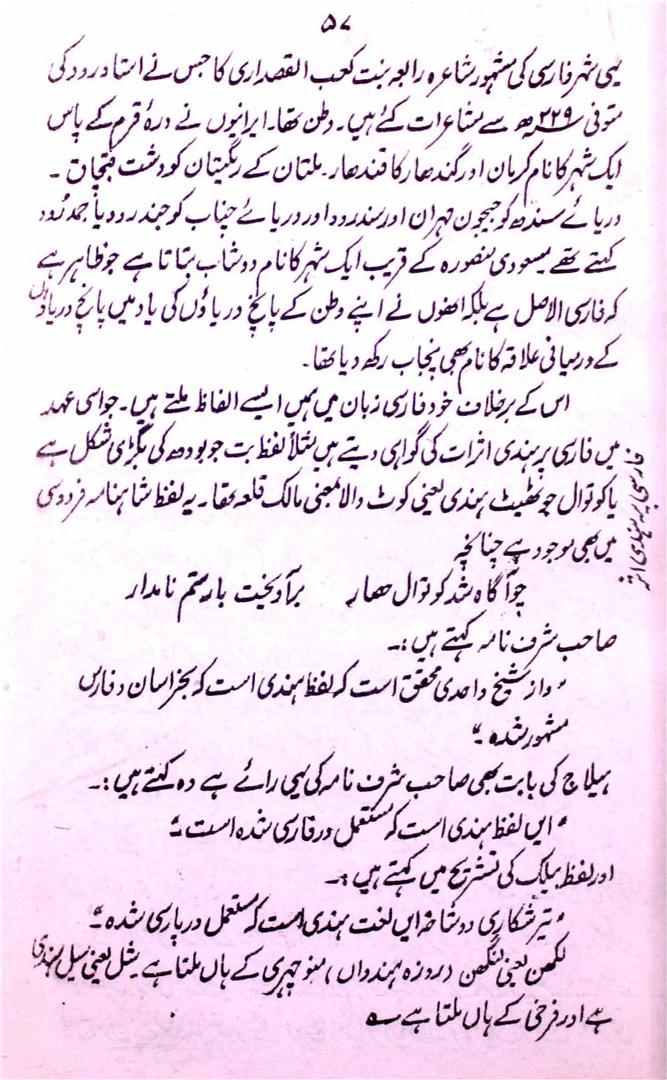 ۵۷
یہی شہر فارسی کی مشہور شاعرہ رابعہ بنت کعب القصداری کا جس نے استاد رودکی
متوفی ۲۲۹ھ سے مشاعرات کئے ہیں۔ وطن تھا۔ ایرانیوں نے درۂ قرم کے پاس
ایک شہر کا نام کرمان اور گندھار کا قندھار۔ ملتان کے ریگستان کو دشت قبچاق۔
دریائے سندھ کو جیحون مہران اور سندرود اور دریائے چناب کو جندرود یا جمدرود
کہتے تھے مسعودی منصورہ کے قریب ایک شہر کا نام دوشاب بتاتا ہے جو ظاہر ہے
کہ فارسی الاصل ہے بلکہ انھوں نے اپنے وطن کے پانچ دریاؤں کی یاد میں پانچ دریاؤں
کے درمیانی علاقہ کا نام بھی پنجاب رکھ دیا تھا۔
اس کے برخلاف خود فارسی زبان میں ہمیں ایسے الفاظ ملتے ہیں۔ جو اسی عہد
میں فارسی پر ہندی اثرات کی گواہی دیتے ہیں مثلاً لفظ بت جو بودھ کی بگڑی شکل ہے
یا کوتوال جو ٹھیٹ ہندی یعنی کوٹ والا بمعنی مالک قلعہ تھا۔ یہ لفظ شاہنامہ فردوسی
میں بھی موجود ہے چنانچہ
فارسی پر ہندی اثر
چو آگاہ شد کوتوال حصار برآویخت با رستم نامدار
صاحب شرف نامہ کہتے ہیں:۔
"و از شیخ واحدی محقق است کہ لفظ ہندی است کہ بخراسان و فارس
مشہور شدہ۔"
ہیلاج کی بابت بھی صاحب شرف نامہ کی یہی رائے ہے وہ کہتے ہیں:۔
"ایں لفظ ہندی است کہ مستعمل در فارسی شدہ است۔"
اور لفظ بیلک کی تشریح میں کہتے ہیں:۔
"تیر شکاری دو شاخہ ایں لغت ہندی است کہ مستعمل در پارسی شدہ۔"
لکھن یعنی لنگھن (روزہ ہندواں) منوچہری کے ہاں ملتا ہے یشل یعنی سیل ہندی
ہے اور فرخی کے ہاں ملتا ہے ؎